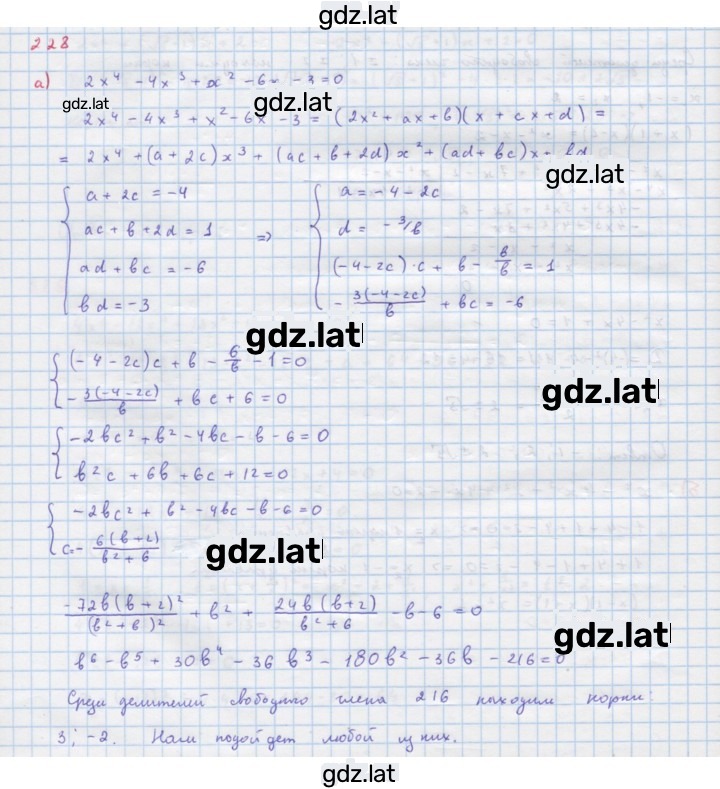 gdz.lat
228
а) 2x⁴ - 4x³ + x² - 6x - 3 = 0
gdz.lat
gdz.lat
2x⁴ - 4x³ + x² - 6x - 3 = (2x² + ax + b)(x + cx + d) =
= 2x⁴ + (a + 2c)x³ + (ac + b + 2d)x² + (ad + bc)x + bd
gdz.lat
a + 2c = -4
ac + b + 2d = 1
ad + bc = -6
bd = -3
=>
a = -4 - 2c
d = -3/b
(-4 - 2c)·c + b - 6/b = 1
-3(-4 - 2c)/b + bc = -6
gdz.lat
(-4 - 2c)c + b - 6/b - 1 = 0
-3(-4 - 2c)/b + bc + 6 = 0
gdz.lat
-2bc² + b² - 4bc - b - 6 = 0
b²c + 6b + 6c + 12 = 0
-2bc² + b² - 4bc - b - 6 = 0
c = - 6(b + 2)/b² + 6
gdz.lat
-72b(b + 2)²/(b² + 6)² + b² + 24b(b + 2)/b² + 6 - b - 6 = 0
gdz.lat
b⁶ - b⁵ + 30b⁴ - 36b³ - 180b² - 36b - 216 = 0
Среди делителей свободного члена 216 находим корни:
3; -2. Нам подойдет любой из них.
gdz.lat